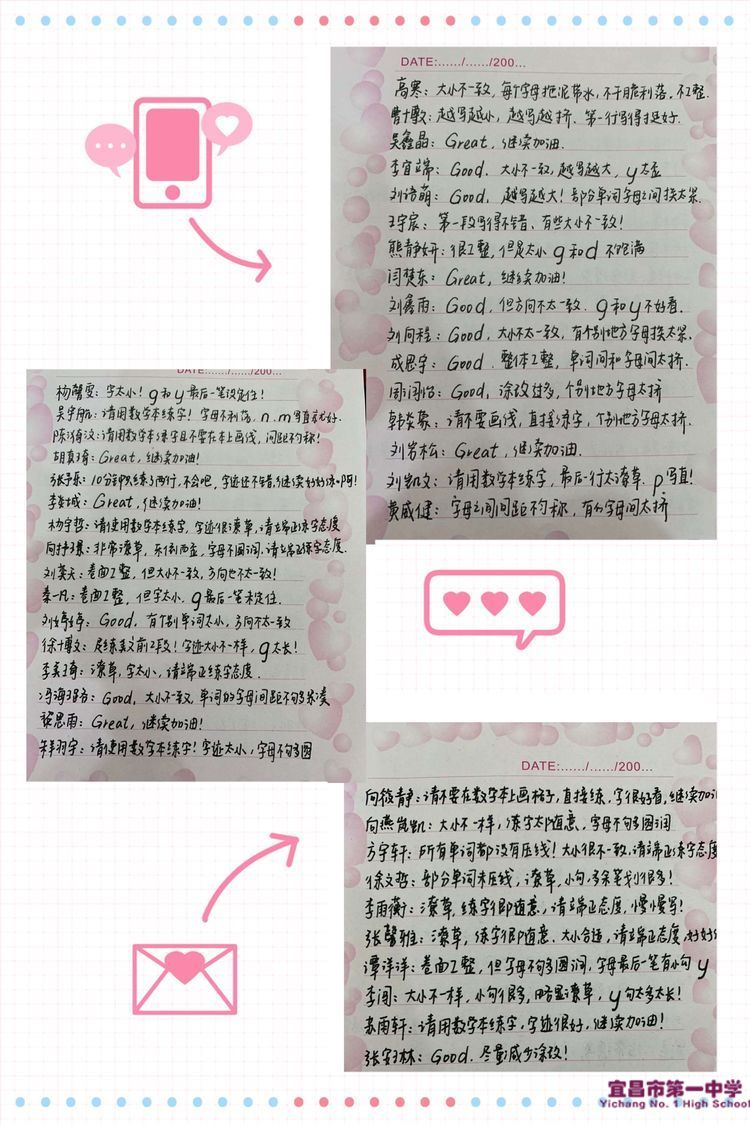 DATE:....../....../200...
高寒：大小不一致，每个字母拖泥带水，不干脆利落，不工整.
曹博敦：越写越小，越写越挤、第一行写得挺好.
吴鑫晶：Great，继续加油.
李宜端：Good. 大小不一致，越写越大，y太歪
刘语萌：Good，越写越大！部分单词字母之间挨太紧.
王宇宸：第一段写得不错、有些大小不一致！
熊静妍：很工整，但是太小 g和d 不饱满
闫梵东：Great，继续加油！
刘鑫雨：Good，但方向不太一致. g和y不好看.
刘向程：Good，大小不太一致，有个别地方字母挨太紧.
成思宇：Good. 整体工整，单词间和字母间太挤.
周润怡：Good，涂改过多，个别地方字母太挤
韩炎象：请不要画线，直接练字，个别地方字母太挤.
刘岩松：Great，继续加油.
刘凯文：请用数学本练字，最后一行太潦草. p写直！
黄威健：字母之间间距不匀称，有的字母间太挤
DATE:....../....../200...
杨馨雯：字太小！g和y最后一笔没定住！
吴宇航：请用数学本练字！字母不利落. n.m写直就好.
请用数学本练字且不要在本上画线，间距不匀称！
Great，继续加油！
张予乐：10分钟只练了两行，不会吧，字迹还不错，继续好好练习啊！
李梁城：Great，继续加油！
杨宇哲：请使用数学本练字，字迹很潦草，请端正练字态度
非常潦草，东倒西歪，字母不圆润，请端正练字态度.
刘昊天：卷面工整，但大小不一致，方向也不太一致！
秦一凡：卷面工整，但字太小. g最后一笔未定住.
刘婷婷：Good，有个别单词太小，方向不太一致
徐博文：只练英文前2段！字迹大小不一样，g太长！
潦草，字太小，请端正练字态度.
Good，大小不一致，单词的字母间距不够紧凑
黎思雨：Great，继续加油！
请使用数学本练字！字迹太小，字母不够圆
DATE:....../....../200...
向筱静：请不要在数学本上画格子，直接练，字很好看，继续加油
向燕岚凯：大小不一样，练字太随意，字母不够圆润
方宇轩：所有单词都没有压线！大小很不一致，请端正练字态度
徐文哲：部分单词未压线，潦草，小勾，多余笔划很多！
李雨衡：潦草，练字很随意，请端正态度，慢慢写！
张馨雅：潦草，练字很随意. 大小合适，请端正态度，好好练
谭洋洋：卷面工整，但字母不够圆润，字母最后一笔有小勾 y
李闯：大小不一样，小勾很多，略显潦草，y勾太多太长！
苏雨轩：请用数学本练字，字迹很好，继续加油！
Good. 尽量减少涂改！
宜昌市第一中学
Yichang No. 1 High School